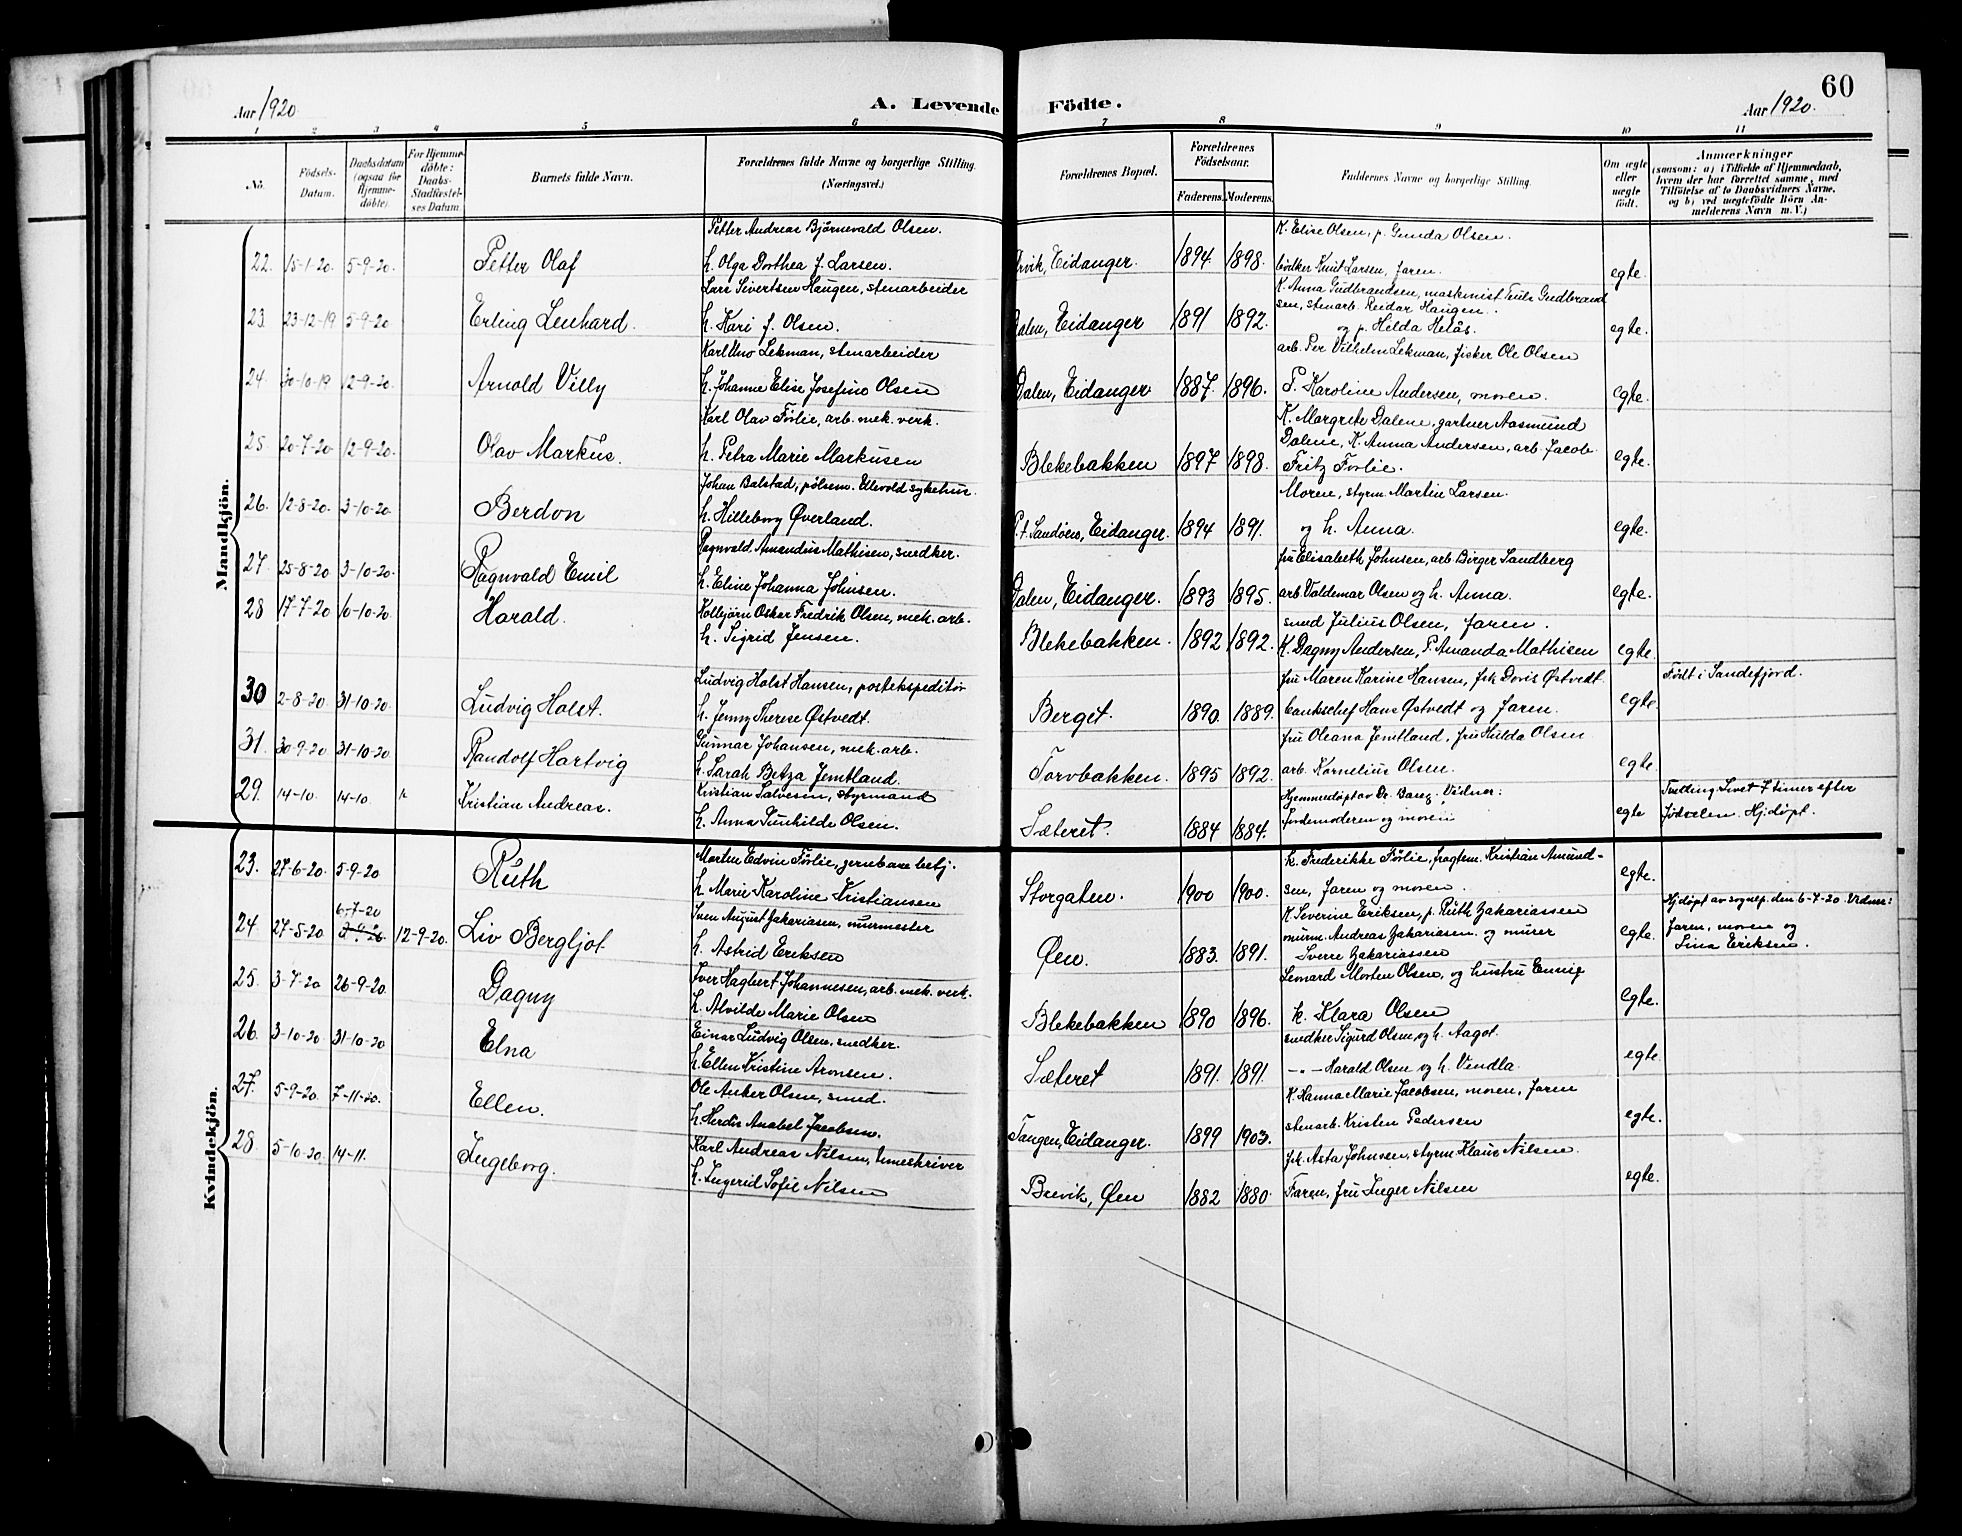 60
Aar 1920.
A. Levende Födte.
Aar 1920.
1 2 3 4 5 6 7 8 9 10 11
No.
Födsels-Datum.
Daabsdatum (ogsaa for Hjemme-döbte).
For Hjemme-döbte: Daabs-Stadfæstel-ses Datum.
Barnets fulde Navn.
Forældrenes fulde Navne og borgerlige Stilling. (Næringsvei.)
Forældrenes Bopæl.
Forældrenes Födselsaar.
Faderens. Moderens.
Faddernes Navne og borgerlige Stilling.
Om ægte eller uægte födt.
Anmærkninger
(saasom: a) i Tilfælde af Hjemmedaab, hvem der har forrettet samme, med Tilföielse af to Daabsvidners Navne, og b) ved uægtefödte Börn An-melderens Navn m. V.)
Mandkjön.
22. 15-1-20. 5-9-20. Petter Olaf
Petter Andreas Bjørnevald Olsen.
h. Olga Dorthea f. Larsen.
Ørvik, Eidanger. 1894. 1898.
K. Elise Olsen, p. Gunda Olsen.
bødker Knut Larsen, faren.
egte.
23. 23-12-19 5-9-20 Erling Lenhard.
Lars Sivertsen Haugen, stenarbeider
h. Kari f. Olsen.
Dalen, Eidanger 1891 1892.
K. Anna Gudbrandsen, maskinist Gudbrand
sen, stenarb. Reidar Haugen.
og p. Helda
egte.
24. 30-10-19 12-9-20. Arnold Villy
Karl Uno Lekman, stenarbeider
h. Johanne Elise Josefine Olsen
Dalen, Eidanger 1887. 1896.
arb. Per Vilhelm Lekman, fisker Ole Olsen
P. Karoline Andersen, moren.
egte.
25. 20-7-20 12-9-20. Olav Markus.
Karl Olav Førlie, arb. mek. verk.
h. Petra Marie Markusen
Blekebakken 1897 1898.
K. Margrete Dalene, gartner Aasmund
Dalene, K. Anna Andersen, arb. Jacob
Fritz Førlie.
egte.
26. 12-8-20. 3-10-20. Berdon
Johan Balstad, pølsem. Ullevold sykehus.
h. Hilleborg Øverland.
P.t. Sandøen, Eidanger. 1894 1891.
Moren, styrm. Martin Larsen.
og h. Anna.
egte.
27 25-8-20 3-10-20. Ragnvald Emil
Ragnvald Amandus Mathisen, snedker.
h. Eline Johanna Johnsen.
Dalen, Eidanger. 1893 1895.
fru Elisabeth Johnsen, arb. Birger Sandberg
arb. Valdemar Olsen og h. Anna.
egte.
28 17-7-20 10-10-20. Harald.
Kolbjørn Oskar Fredrik Olsen, mek. arb.
h. Sigrid Jensen.
Blekebakken. 1892 1892.
smed Julius Olsen, faren.
K. Dagny Andersen, P. Amanda Mathisen
egte.
30 2-8-20 31-10-20. Ludvig Holst.
Ludvig Holst Hansen, postekspeditør
h. Jenny Therese Østvedt.
Berget. 1890. 1889.
fru Maren Karine Hansen, frk. Doris Østvedt.
bankschef Hans Østvedt og faren.
egte.
Født i Sandefjord.
31. 30-9-20 31-10-20. Randolf Hartvig
Gunnar Johansen, mek. arb.
h. Sarah Betza Jemtland.
Torvbakken. 1895 1892.
fru Oleana Jemtland, fru Hulda Olsen
arb. Kornelius Olsen.
egte.
29. 14-10. 14-10 Kristian Andreas.
Kristian Salvesen, styrmand
h. Anna Gunhilde Olsen.
Sæteret. 1884 1884.
Hjemmedøpt av Dr. Vidner:
jordemoderen og moren
egte
Tvilling. Livet 7 timer efter
fødselen. Hj.døpt.
Kvindekjön.
23. 27-6-20. 5-9-20 Ruth
Morten Edvin Førlie, jernbane betj.
h. Marie Karoline Kristiansen
Storgaten. 1900 1900.
k. Frederikke Førlie, fragtem. Kristian Amund-
sen, faren og moren.
egte.
24 27-5-20 6-7-20 12-9-20. Liv Bergljot
Sven August Zakariasen, murmester
h. Astrid Eriksen
Øen. 1883. 1891.
K. Severine Eriksen, p. Ruth Zakariassen
murm. Andreas Zakariasen og murer
Sverre Zakariassen
egte.
Hj.døpt av sognep. den 6-7-20. Vidner:
Faren, moren og
Lina Eriksen.
25. 3-7-20 26-9-20. Dagny
Iver Hagbert Johannesen, arb. mek. verk.
h. Alvilde Marie Olsen
Blekebakken 1890 1896.
Leonard Morten Olsen, og hustru
k. Klara Olsen
egte.
26. 3-10-20 31-10-20 Elna
Einar Ludvig Olsen, snedker.
h. Ellen Kristine Aronsen.
Sæteret 1891. 1891.
snedker Sigurd Olsen og h. Aagot.
–"– Harald Olsen og h. Vendla
egte.
27. 5-9-20. 7-11-20. Ellen.
Ole Anker Olsen, smed.
h. Herdis Anabel Jacobsen.
Tangen, Eidanger. 1899 1903.
K. Hanna Marie Jacobsen, moren, faren
stenarb. Kristen Pedersen
egte.
28. 5-10-20. 14-11. Ingeborg.
Karl Andreas Nilsen,
h. Ingerid Sofie Nilsen
Brevik, Øen 1882 1880.
frk. Asta Johnsen, styrm. Klaus Nilsen.
Faren, fru Inger Nilsen
egte.